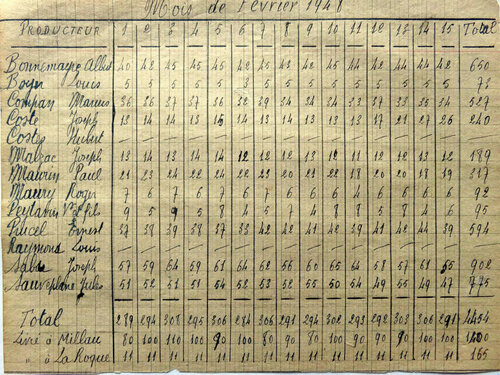 Mois de Février 1948
PRODUCTEUR 1 2 3 4 5 6 7 8 9 10 11 12 13 14 15 Total
Bonnemayre Albert 40 42 45 45 45 42 45 43 42 45 44 42 44 44 42 650
Boyer Louis 5 5 5 5 5 3 5 5 5 5 5 5 5 5 5 73
Compan Marius 36 36 37 37 36 32 29 34 34 34 33 37 33 35 34 527
Coste Joseph 13 14 14 13 15 14 13 14 17 21 27 26 240
Costes Hubert
Malzac Joseph 13 14 13 14 14 12 12 12 13 12 11 12 12 13 12 189
Maurin Paul 21 23 24 22 24 22 23 20 21 22 18 20 20 18 19 317
Maury Roger 7 6 7 6 7 6 7 6 6 6 6 6 6 92
Peytavin Vve & fils 9 5 9 5 8 4 5 7 4 8 8 5 8 4 6 95
Pucel Ernest 37 38 39 38 37 33 42 42 41 42 39 41 42 44 39 594
Raymond Louis
Salse Joseph 57 59 64 59 61 64 62 56 60 65 64 58 57 61 55 902
Sauveplane Jules 51 52 51 51 54 52 53 52 55 50 54 49 55 49 47 775
Total 289 294 308 295 306 284 306 291 294 306 293 292 303 306 291 4454
Livré à Millau 80 100 110 100 90 100 80 110 100 80 110 90 1400
„ à La Roque 11 11 11 11 11 11 11 11 11 11 11 11 11 11 11 165